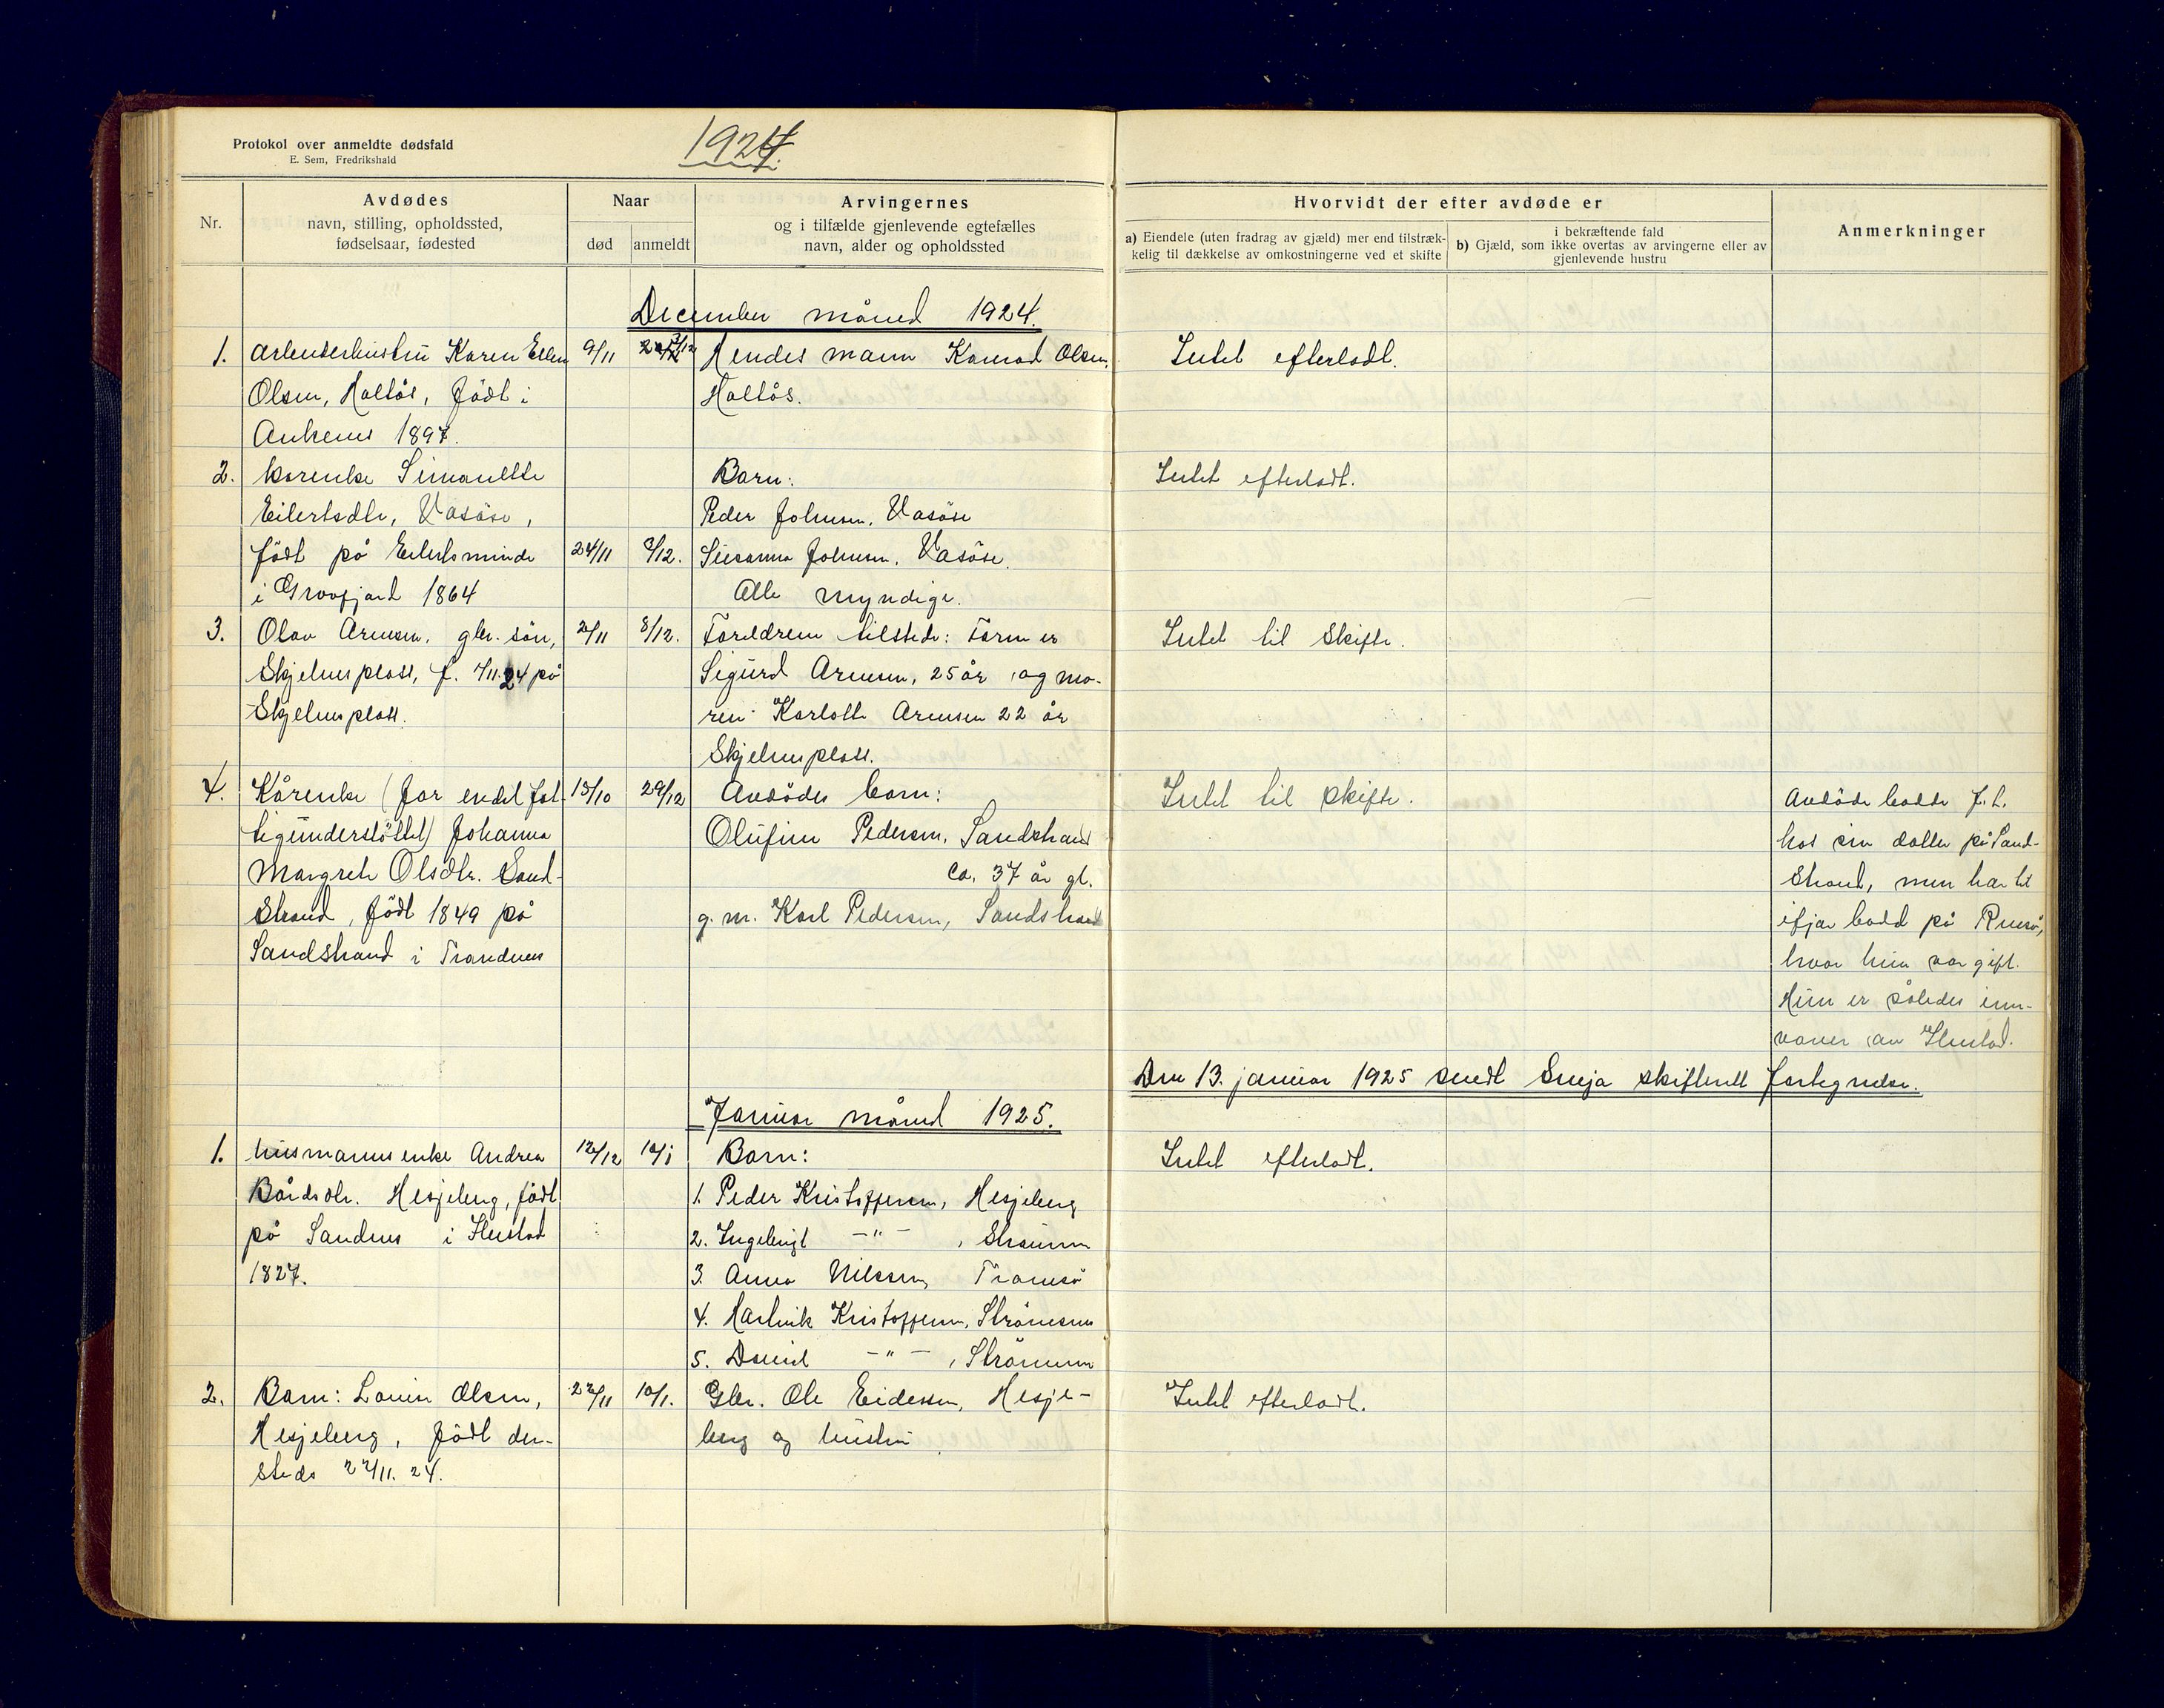 Protokol over anmeldte dødsfald
E. Sem, Fredrikshald
1924.
Nr.
Avdødes
navn, stilling, opholdssted,
fødselsaar, fødested
Naar
død
anmeldt
Arvingernes
og i tilfælde gjenlevende egtefælles
navn, alder og opholdssted
Hvorvidt der efter avdøde er
a) Eiendele (uten fradrag av gjæld) mer end tilstræk-
kelig til dækkelse av omkostningerne ved et skifte
i bekræftende fald
b) Gjæld, som ikke overtas av arvingerne eller av
gjenlevende hustru
Anmerkninger
December måned 1924.
1. arbeiderhustru Karen Ellen 9/11 Hendes mann Konrad Olsen, Intet efterladt.
Olsen, Hallås, født i Hallås.
1897.
2. kårenke Simanette Barn: Intet efterladt.
Eilertsdtr, Vasöse, Peder Johnsen, Vasöse
født på Eilertsminde 24/11 8/12. Susanna Johnsen, Vasöse.
i Grovfjord 1864 Alle myndige.
3. Olav Arnesen, gbr. sön, 2/11 8/12. Foreldrene tilstede: Faren er Intet til Skifte.
Skjelnesplass, f. 1/11.24 på Sigurd Arnesen, 25 år og mo-
Skjelnesplass. ren Karlotte Arnesen 22 år
Skjelnesplass.
4. Kårenke (for endel fat- 13/10 29/12 Avdødes barn: Intet til skifte. Avdöde bodde f.t.
tigunderstöttet) Johanna Olufine Pedersen, Sandstrand hos sin datter på Sand-
Margrete Olsdtr. Sand- ca. 37 år gl. Strand, men har til
Strand, født 1849 på g. m. Karl Pedersen, Sandstrand ifjor bodd på
Sandstrand i Trandenes hvor hun var gift.
Hun er således inn-
vaaner av Ibestad.
Den 13. januar 1925 sendt Senja skifterett fortegnelse.
Januar måned 1925.
1. husmannsenke Andrea 12/12 10/1 Barn: Intet efterladt.
Bårdsdtr. Hesjeberg, født 1. Peder Kristoffersen, Hesjeberg
på Sandnes i Ibestad 2. Ingebrigt -"- ,
1827. 3. Anna Nilssen, Tromsö
4. Hartvik Kristoffersen, Strömsnes
5. Daniel -"- ,
2. Barn: Lovise Olsen, 22/11 10/1. Gbr. Ole Eidesen, Hesje- Intet efterladt.
Hesjeberg, født der- berg og hustru
steds 22/11. 24.